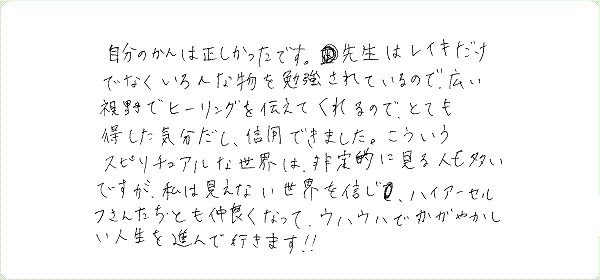 自分のかんは正しかったです。先生はレイキだけ
でなくいろんな物を勉強されているので、広い
視野でヒーリングを伝えてくれるので、とても
得した気分だし、信用できました。こういう
スピリチュアルな世界は、非定的に見る人も多い
ですが、私は見えない世界を信じ、ハイアーセル
フさんたちとも仲良くなって、ウハウハでかがやかし
い人生を進んで行きます!!